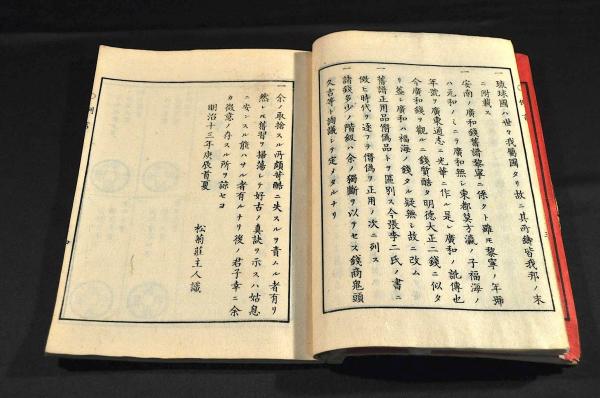 一 琉球國ハ世々我屬國タリ故ニ其所鋳皆我邦ノ末
ニ附載ス
一 安南ノ廣和錢舊譜黎寧ニ係クト雖モ黎寧ノ年號
ハ元和ノミニテ廣和無シ東都莫方瀛ノ子福海ノ
年號ヲ廣東通志ニ光華ニ作ル是レ廣和ノ訛傳也
今廣和錢ヲ觀ルニ錢質酷タ明德大正二錢ニ似タ
リ蓋シ廣和ハ福海ノ錢タル疑無シ故ニ改ム
一 舊譜正用品僭僞品トヲ區別ス今張李二氏ノ書ニ
倣ヒ時代ヲ逐フテ僭僞ヲ正用ノ次ニ列ス
一 諸錢多少ノ階級ハ余ノ獨斷ヲ以テセス錢商鬼頭
久吉等ト商議シテ定メタルナリ
一 余ノ取捨スル所頗苛酷ニ失スルヲ責ムル者有リ
然レ𪜈舊習ヲ掃蕩シテ好古ノ真訣ヲ示スハ姑息
ニ安ンスル能ハサル者有ルナリ後ノ君子幸ニ余
カ微意ノ存スル所ヲ諒セヨ
明治十三年庚辰首夏
松菊莊主人識